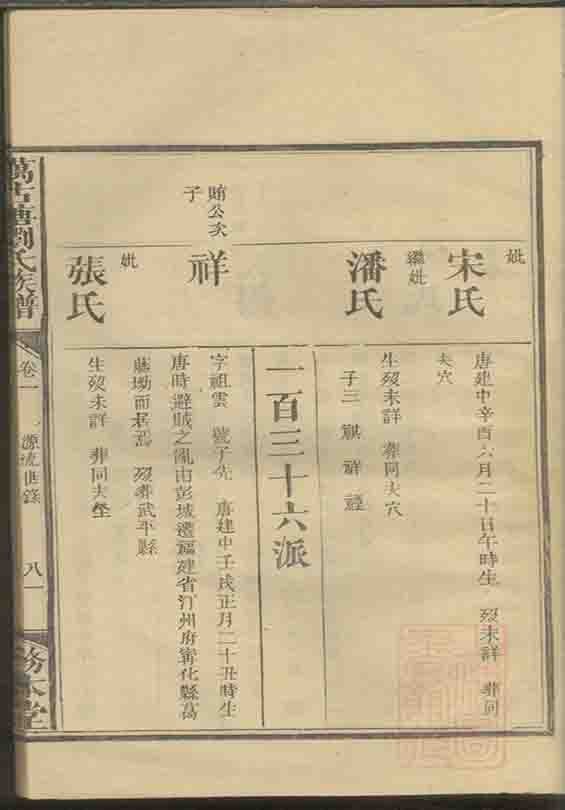 妣
宋氏
唐建中辛酉六月二十日午時生 歿未詳 葬同
夫穴
繼妣
潘氏
生歿未詳 葬同夫穴
子三 祺 祥 禮
一百三十六派
賄公次
子
祥
字祖雲 號子先 唐建中壬戌正月二十丑時生
唐時避賊之亂由彭城遷福建省汀州府甯化縣葛
藤坳而居焉 歿葬武平縣
妣
張氏
生歿未詳 葬同夫塋
萬古塘劉氏族譜
卷一
源流世錄
八一
務本堂